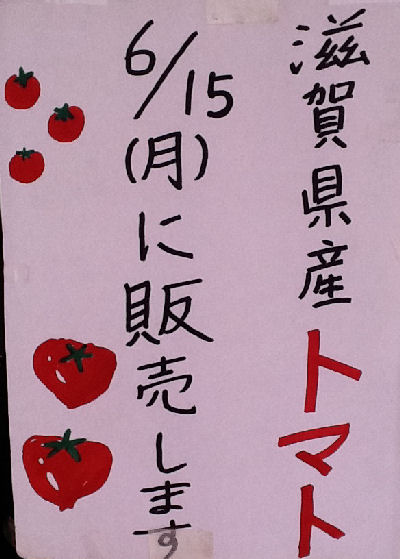 滋賀県産トマト
6/15(月)に販売します